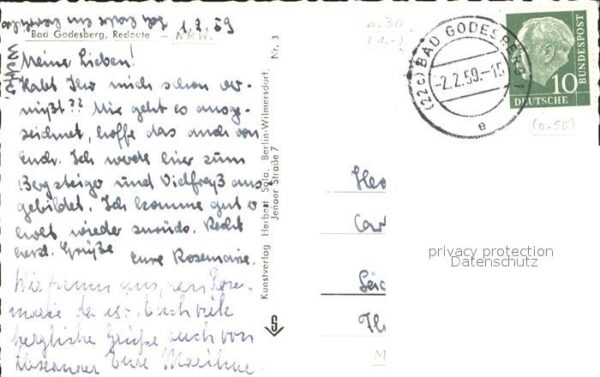 1.2.59
Bad Godesberg, Redoute - NRW.
Meine Lieben!
Habt Ihr mich schon ver-
mißt?? Mir geht es ausge-
zeichnet, hoffe das auch von
Euch. Ich werde hier zum
Bergsteiger und Vielfraß aus-
gebildet. Ich komme gut er-
holt wieder zurück. Recht
herzl. Grüße
Eure Rosemarie.
Wir freuen uns, daß Rose-
marie da ist. Auch viele
herzliche Grüße auch von
Eure
Kunstverlag Herbert Sala, Berlin-Wilmersdorf,
Jenaer Straße 7
Nr. 3
0.30
(22c) BAD GODESBERG 1
-2.2.59.-15
e
10
DEUTSCHE
BUNDESPOST
(0.50)
privacy protection
Datenschutz